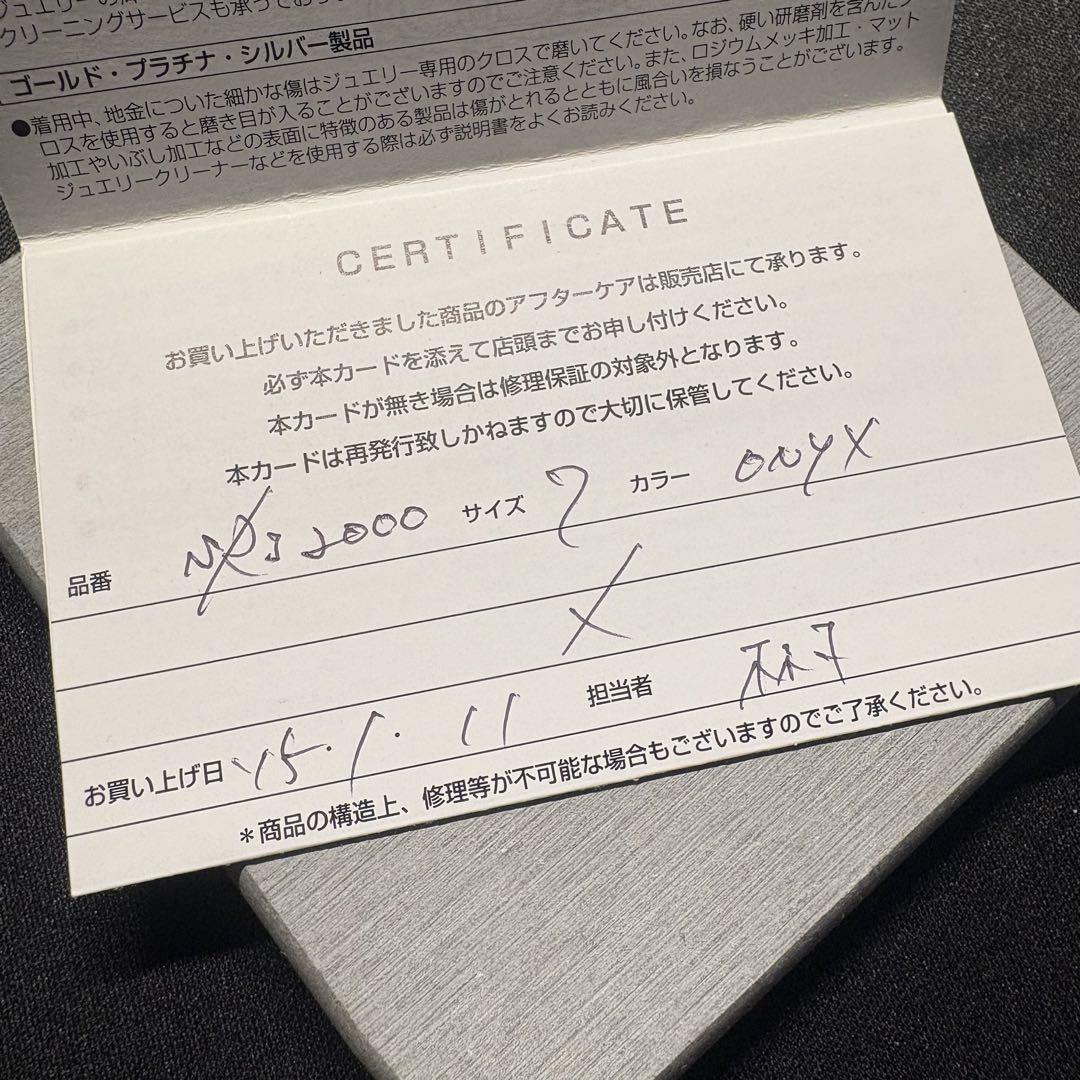 クリーニングサービスも承ってお
ゴールド・プラチナ・シルバー製品
●着用中、地金についた細かな傷はジュエリー専用のクロスで磨いてください。なお、硬い研磨剤を含んだク
ロスを使用すると磨き目が入ることがございますのでご注意ください。また、ロジウムメッキ加工・マット
加工やいぶし加工などの表面に特徴のある製品は傷がとれるとともに風合いを損なうことがございます。
ジュエリークリーナーなどを使用する際は必ず説明書をよくお読みください。
CERTIFICATE
お買い上げいただきました商品のアフターケアは販売店にて承ります。
必ず本カードを添えて店頭までお申し付けください。
本カードが無き場合は修理保証の対象外となります。
本カードは再発行致しかねますので大切に保管してください。
品番 2000 サイズ 7 カラー ONYX
お買い上げ日 '15.1.11 担当者
＊商品の構造上、修理等が不可能な場合もございますのでご了承ください。